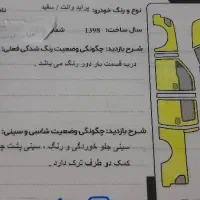 نوع و رنگ خودرو: پراید وانت / سفید
سال ساخت: 1398
شرح بازدید: چگونگی وضعیت رنگ شدگی فعلی:
درب قسمت بار دور رنگ می باشد .
شرح بازدید: چگونگی وضعیت شاسی و سینی:
سینی جلو خوردگی و رنگ ، سینی پشت
کمک دو طرف ترک دارد .